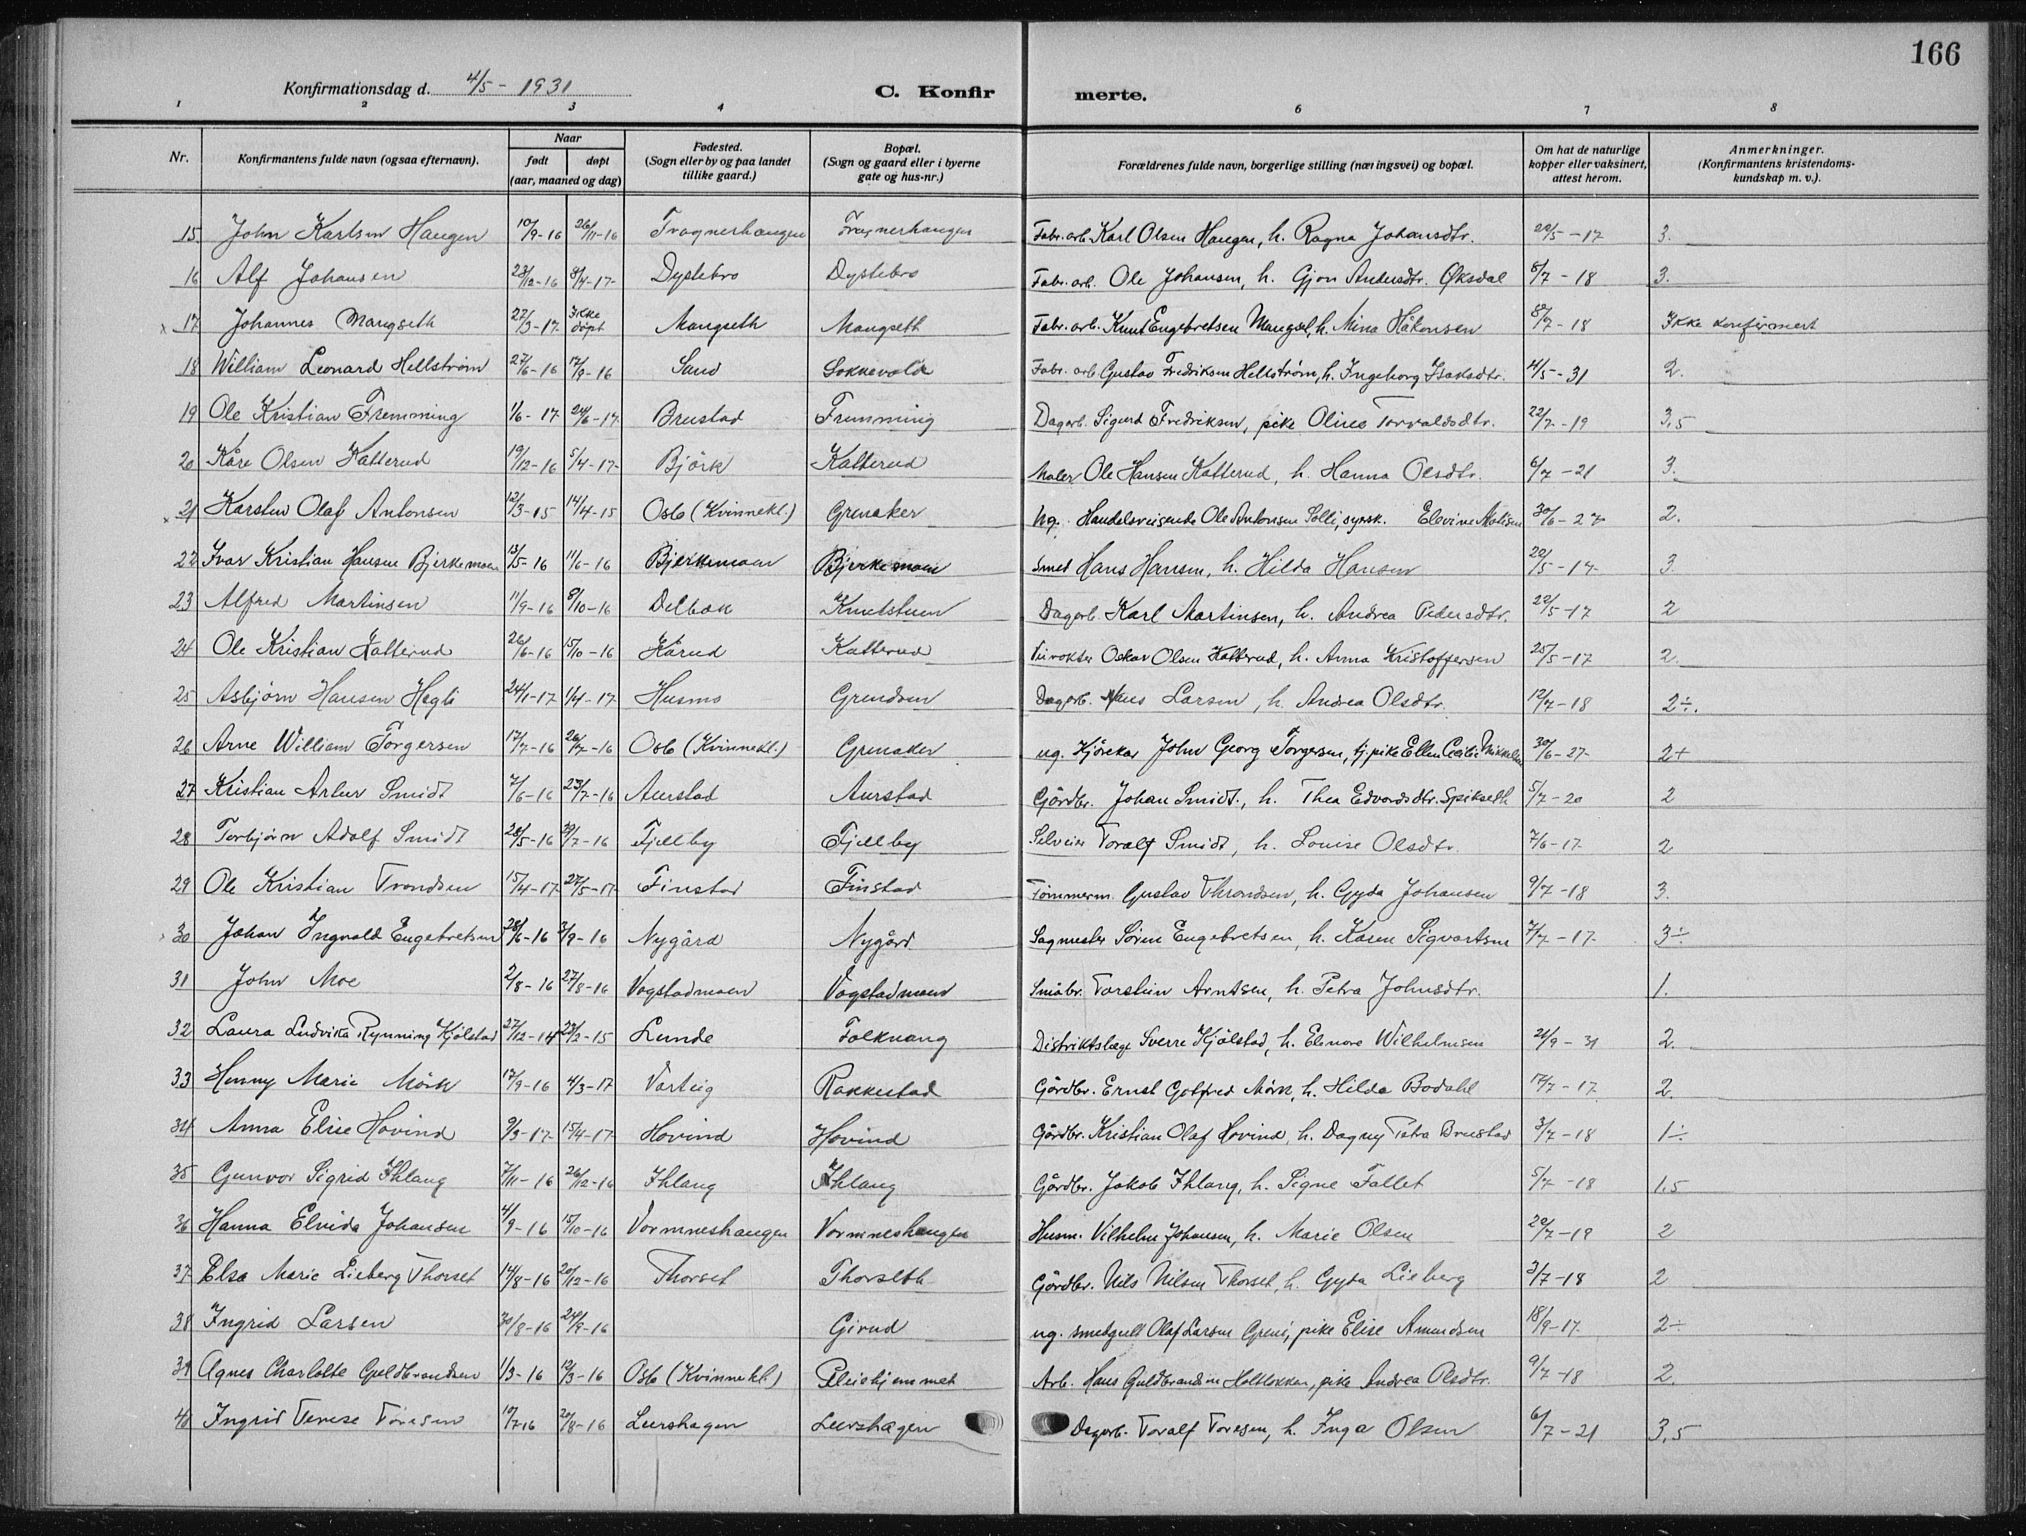 166
Konfirmationsdag d. 4/5 - 1931
C. Konfirmerte.
1 2 3 4 6 7 8
Nr. | Konfirmantens fulde navn (ogsaa efternavn). | Naar født døpt (aar, maaned og dag) | Fødested. (Sogn eller by og paa landet tillike gaard.) | Bopæl. (Sogn og gaard eller i byerne gate og hus-nr.) | Forældrenes fulde navn, borgerlige stilling (næringsvei) og bopæl. | Om hat de naturlige kopper eller vaksinert, attest herom. | Anmerkninger. (Konfirmantens kristendoms-kundskap m. v.).
15 John Karlsen Haugen 10/9-16 26/11-16 Fragnerhaugen Fragnerhaugen Fabr. arb. Karl Olsen Haugen, h. Ragna Johansdtr. 22/5-17 3.
16 Alf Johansen 23/12-16 8/4-17 Dystebro Dystebro Fabr. arb. Ole Johansen, h. Gjon Andersdtr. Øksdal 8/7-18 3.
17 Johannes Mangseth 27/3-17 Ikke døpt Mangseth Mangseth Fabr. arb. Knut Engebretsen Mangset, h. Mina Håkonsen 8/7-18 Ikke konfirmert
18 William Leonard Hellstrøm 27/6-16 17/9-16 Sand Soknevold Fabr. arb. Gustav Fredriksen Hellstrøm, h. Ingeborg Isaksdtr. 4/5-31 2.
19 Ole Kristian Fremming 1/6-17 24/6-17 Brustad Fremming Dagarb. Sigurd Fredriksen, pike Oline Torvaldsdtr. 22/7-19 3,5
20 Kåre Olsen Katterud 19/12-16 5/4-17 Bjørk Katterud Maler Ole Hansen Katterud, h. Hanna Olsdtr. 6/7-21 3.
21 Karsten Olaf Antonsen 12/3-15 14/4-15 Oslo (Kvinnekl.) Grenaker Ug. Handelsreisende Ole Antonsen Solli, syersk. Elevine Matisen 30/6-27 2.
22 Ivar Kristian Hansen Bjerkemoen 13/5-16 11/6-16 Bjerkemoen Bjerkemoen Smed Hans Hansen, h. Hilda Hansen 22/5-17 3.
23 Alfred Martinsen 11/9-16 8/10-16 Delbæk Knutstuen Dagarb. Karl Martinsen, h. Andrea Pedersdtr. 22/5-17 2
24 Ole Kristian Katterud 26/6-16 15/10-16 Kårud Katterud Veivokter Oskar Olsen Katterud, h. Anna Kristoffersen 25/5-17 2.
25 Asbjørn Hansen Hegli 24/1-17 1/4-17 Husmo Grendsen Dagarb. Hans Larsen, h. Andrea Olsdtr. 12/7-18 2÷.
26 Arne William Torgersen 17/7-16 26/7-16 Oslo (Kvinnekl.) Grenaker ug. Kjørekar John Georg Torgersen, tj.pike Ellen Cecilie Mikkelsen 30/6-27 2+
27 Kristian Artur Smidt 7/6-16 23/7-16 Aurstad Aurstad Gårdbr. Johan Smidt, h. Thea Edvardsdtr. Spikseth 5/7-20 2
28 Torbjørn Adolf Smidt 28/5-16 29/7-16 Fjellby Fjellby Selveier Toralf Smidt, h. Louise Olsdtr. 7/6-17 2
29 Ole Kristian Trondsen 15/4-17 27/5-17 Finstad Finstad Tømmerm. Gustav Throndsen, h. Gyda Johansen 9/7-18 3.
30 Johan Ingvald Engebretsen 28/6-16 3/9-16 Nygård Nygård Sagmester Søren Engebretsen, h. Karen Sigvartsen 7/7-17 3÷
31 John Moe 2/8-16 27/8-16 Vogstadmoen Vogstadmoen Småbr. Torstein Arntsen, h. Petra Johnsdtr. 1.
32 Laura Ludvika Rynning Kjølstad 27/12-14 23/2-15 Lunde Folkvang Distriktslæge Sverre Kjølstad, h. Elenore Wilhelmsen 21/9-31 2.
33 Henny Marie Mørk 17/9-16 4/3-17 Varteig Rakkestad Gårdbr. Ernst Gotfred Mørk, h. Hilda Bodahl 17/7-17 2.
34 Anna Elise Hovind 9/3-17 15/4-17 Hovind Hovind Gårdbr. Kristian Olaf Hovind, h. Dagny Petra Brustad 3/7-18 1÷
35 Gunvor Sigrid Ihlang 7/11-16 26/12-16 Ihlang Ihlang Gårdbr. Jakob Ihlang, h. Signe Fallet 5/7-18 1,5
36 Hanna Elvida Johansen 4/9-16 15/10-16 Vormneshaugen Vormneshaugen Husm. Vilhelm Johansen, h. Marie Olsen 20/7-19 2
37 Elsa Marie Lieberg Thorset 14/8-16 20/12-16 Thorset Thorseth Gårdbr. Nils Nilsen Thorset, h. Gyda Lieberg 3/7-18 2
38 Ingrid Larsen 30/8-16 24/9-16 Girud ug. smedgutt Olaf Larsen Greni, pike Elise Amundsen 18/9-17 2÷
39 Agnes Charlotte Guldbrandsen 1/3-16 12/3-16 Oslo (Kvinnekl.) Pleiehjemmet Arb. Hans Guldbrandsen Holtlokken, pike Andrea Olsdtr. 9/7-18 2.
40 Ingrid Terese Toresen 10/7-16 20/8-16 Leershagen Leershagen Dagarb. Toralf Toresen, h. Inga Olsen 6/7-21 3,5